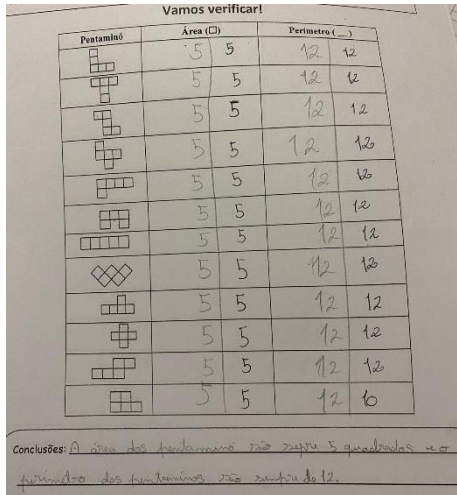 Vamos verificar!
Pentaminó Área (□) Perímetro ( __ )
5 5 12 12
5 5 12 12
5 5 12 12
5 5 12 12
5 5 12 12
5 5 12 12
5 5 12 12
5 5 12 12
5 5 12 12
5 5 12 12
5 5 12 12
5 5 12 10
Conclusões: A área dos pentaminó são sepre 5 quadrados e o
perimetro dos pentaminos são sempre do 12.